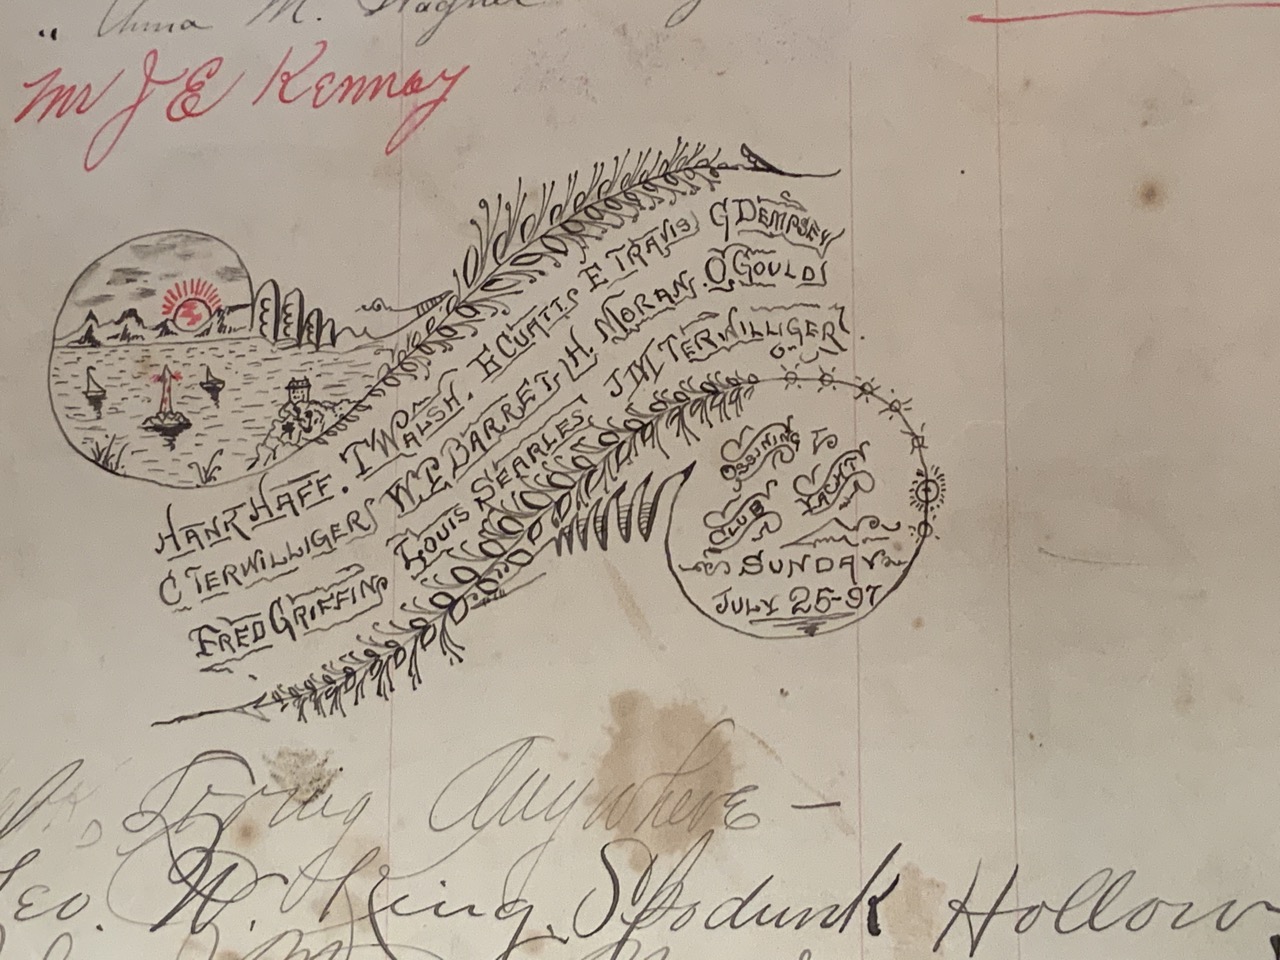 " Anna M. Wagner
Mr J E Kennay
HANK HAFF. T WALSH. E CURTIS E TRAVIS G DEMPSEY
C TERWILLIGER W.P. BARRET H. MORAN. O. GOULD
FRED GRIFFIN LOUIS SEARLES, J M TERWILLIGER
OSSINING
YACHT
CLUB
SUNDAY
JULY 25-97
Anywhere —
Geo. W. King. Spodunk Hollow,